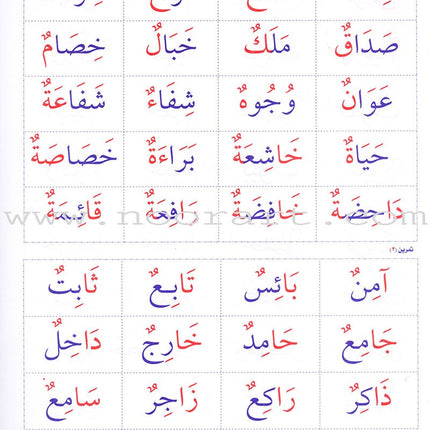 صَدَاقٌ مَلَكٌ خَبَالٌ خِصَامٌ
عَوَانٌ وُجُوهٌ شِفَاءٌ شَفَاعَةٌ
حَيَاةٌ خَاشِعَةٌ بَرَاءَةٌ خَصَاصَةٌ
دَاحِضَةٌ خَافِضَةٌ رَافِعَةٌ قَائِمَةٌ
www.noorart.com
تمرين (٢)
آمِنٌ بَائِسٌ تَابِعٌ ثَابِتٌ
جَامِعٌ حَامِدٌ خَارِجٌ دَاخِلٌ
ذَاكِرٌ رَاكِعٌ زَاجِرٌ سَامِعٌ